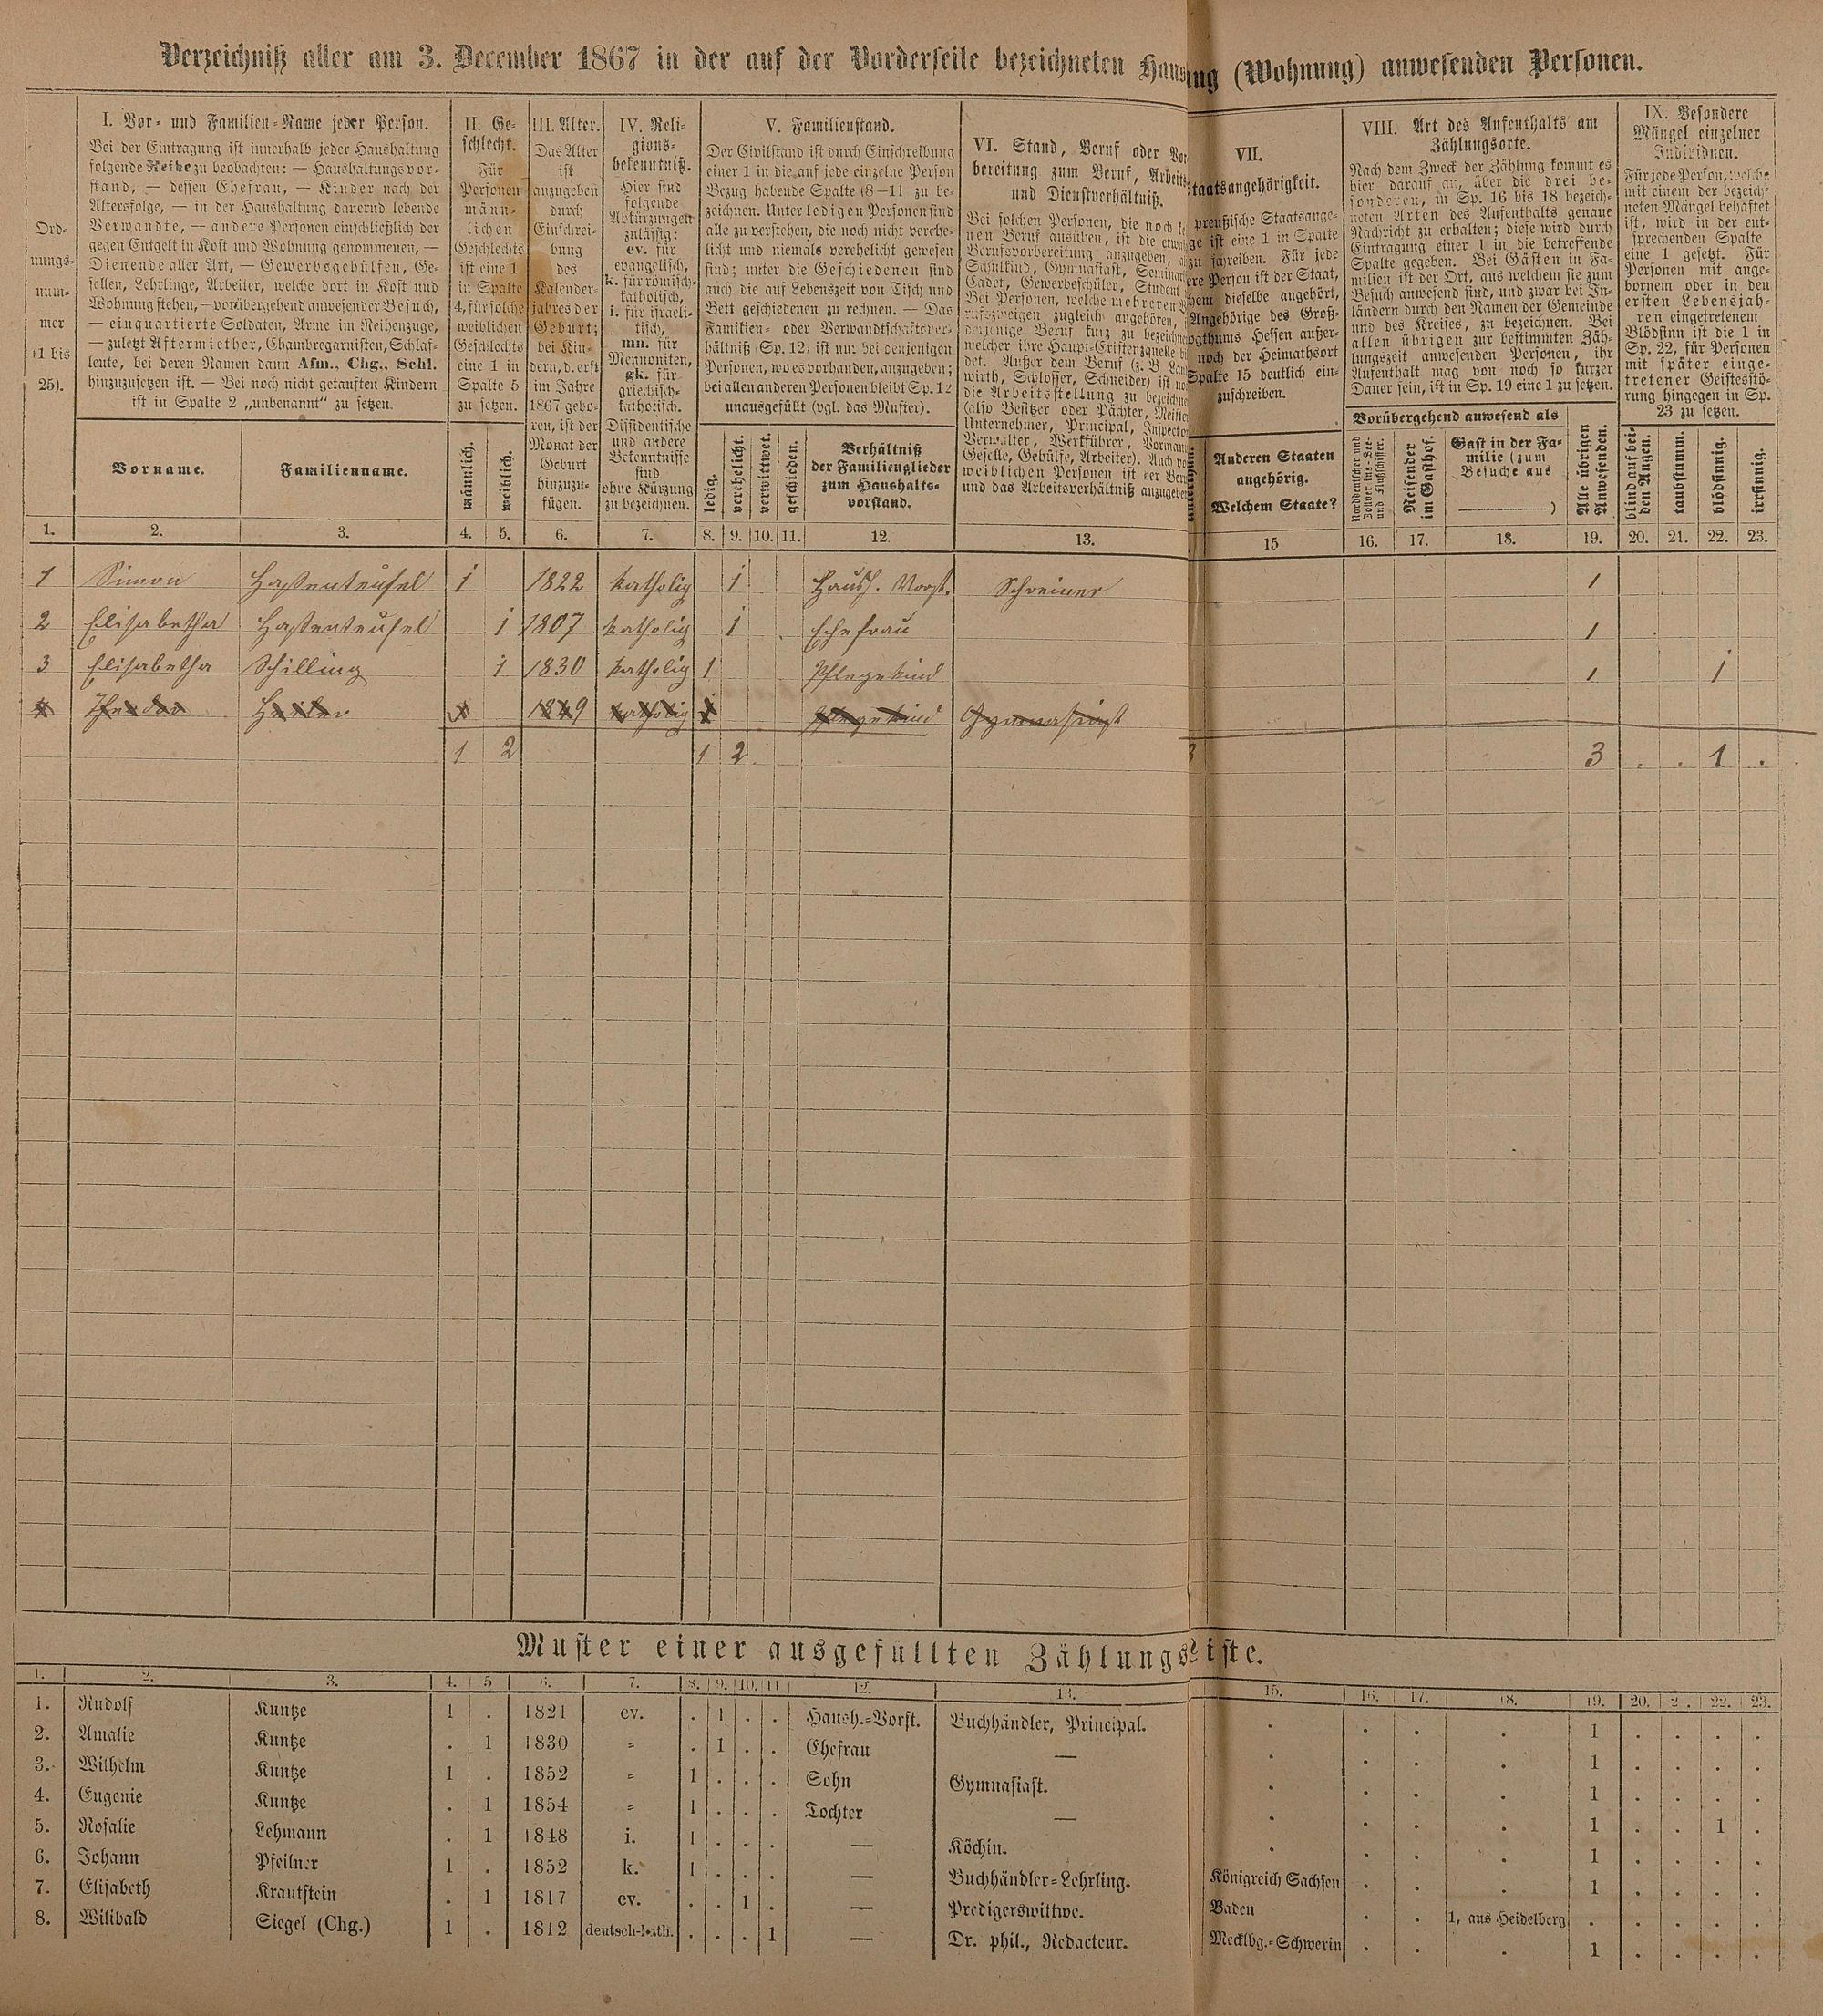 Verzeichniß aller am 3. December 1867 in der auf der Vorderseite bezeichneten Haus ng (Wohnung) anwesenden Personen.
Ord-
nungs-
num-
mer
(1 bis
25).
I. Vor- und Familien-Name jeder Person.
Bei der Eintragung ist innerhalb jeder Haushaltung
folgende Reihe zu beobachten: — Haushaltungsvor-
stand, — dessen Ehefrau, — Kinder nach der
Altersfolge, — in der Haushaltung dauernd lebende
Verwandte, — andere Personen einschließlich der
gegen Entgelt in Kost und Wohnung genommenen, —
Dienende aller Art, — Gewerbsgehülfen, Ge-
sellen, Lehrlinge, Arbeiter, welche dort in Kost und
Wohnung stehen, — vorübergehend anwesender Besuch,
— einquartierte Soldaten, Arme im Reihenzuge,
— zuletzt Aftermiether, Chambregarnisten, Schlaf-
leute, bei deren Namen dann Afm., Chg., Schl.
hinzuzusetzen ist. — Bei noch nicht getauften Kindern
ist in Spalte 2 „unbenannt“ zu setzen.
Vorname.
Familienname.
II. Ge-
schlecht.
Für
Personen
männ-
lichen
Geschlechts
ist eine 1
in Spalte
4, für solche
weiblichen
Geschlechts
eine 1 in
Spalte 5
zu setzen.
männlich.
weiblich.
III. Alter.
Das Alter
ist
anzugeben
durch
Einschrei-
bung
des
Kalender-
jahres der
Geburt;
bei Kin-
dern, d. erst
im Jahre
1867 gebo-
ren, ist der
Monat der
Geburt
hinzuzu-
fügen.
IV. Reli-
gions-
bekenntniß.
Hier sind
folgende
Abkürzungen
zulässig:
ev. für
evangelisch,
k. für römisch-
katholisch,
i. für israeli-
tisch,
mn. für
Mennoniten,
gk. für
griechisch-
katholisch.
Dissidentische
und andere
Bekenntnisse
sind
ohne Kürzung
zu bezeichnen.
V. Familienstand.
Der Civilstand ist durch Einschreibung
einer 1 in die auf jede einzelne Person
Bezug habende Spalte (8—11 zu be-
zeichnen. Unter ledigen Personen sind
alle zu verstehen, die noch nicht verehe-
licht und niemals verehelicht gewesen
sind; unter die Geschiedenen sind
auch die auf Lebenszeit von Tisch und
Bett geschiedenen zu rechnen. — Das
Familien- oder Verwandtschaftsver-
hältniß (Sp. 12) ist nur bei denjenigen
Personen, wo es vorhanden, anzugeben;
bei allen anderen Personen bleibt Sp. 12
unausgefüllt (vgl. das Muster).
ledig.
verehelicht.
verwittwet.
geschieden.
Verhältniß
der Familienglieder
zum Haushalts-
vorstand.
VI. Stand, Beruf oder Vor
bereitung zum Beruf, Arbeits
und Dienstverhältniß.
Bei solchen Personen, die noch
nen Beruf ausüben, ist die etwa
Berufsvorbereitung anzugeben,
Schulkind, Gymnasiast, Seminar
Cadet, Gewerbeschüler, Student
Bei Personen, welche mehreren
rufszweigen zugleich angehören,
derjenige Beruf kurz zu bezeichnen
welcher ihre Haupt-Existenzquelle bi
det. Außer dem Beruf (z. B. Lan
wirth, Schlosser, Schneider) ist no
die Arbeitsstellung zu bezeichne
(also Besitzer oder Pächter, Meister
Unternehmer, Principal, Inspecto
Verwalter, Werkführer, Vorman
Geselle, Gehülfe, Arbeiter). Auch
weiblichen Personen ist der Ber
und das Arbeitsverhältniß anzugeben
VII.
taatsangehörigkeit.
preußische Staatsange-
ge ist eine 1 in Spalte
zu schreiben. Für jede
ere Person ist der Staat,
hem dieselbe angehört,
Angehörige des Groß-
ogthums Hessen außer-
noch der Heimathsort
Spalte 15 deutlich ein-
zuschreiben.
Anderen Staaten
angehörig.
Welchem Staate?
VIII. Art des Aufenthalts am
Zählungsorte.
Nach dem Zweck der Zählung kommt es
hier darauf an, über die drei be-
sonderen, in Sp. 16 bis 18 bezeich-
neten Arten des Aufenthalts genaue
Nachricht zu erhalten; diese wird durch
Eintragung einer 1 in die betreffende
Spalte gegeben. Bei Gästen in Fa-
milien ist der Ort, aus welchem sie zum
Besuch anwesend sind, und zwar bei In-
ländern durch den Namen der Gemeinde
und des Kreises, zu bezeichnen. Bei
allen übrigen zur bestimmten Zäh-
lungszeit anwesenden Personen, ihr
Aufenthalt mag von noch so kurzer
Dauer sein, ist in Sp. 19 eine 1 zu setzen.
Vorübergehend anwesend als
Reisender
im Gasthof.
Gast in der Fa-
milie (zum
Besuche aus
)
Alle übrigen
Anwesenden.
IX. Besondere
Mängel einzelner
Individuen.
Für jede Person, welche
mit einem der bezeich-
neten Mängel behaftet
ist, wird in der ent-
sprechenden Spalte
eine 1 gesetzt. Für
Personen mit ange-
bornem oder in den
ersten Lebensjah-
ren eingetretenem
Blödsinn ist die 1 in
Sp. 22, für Personen
mit später einge-
tretener Geistesstö-
rung hingegen in Sp.
23 zu setzen.
blind auf bei-
den Augen.
taubstumm.
blödsinnig.
irrsinnig.
1. 2. 3. 4. 5. 6. 7. 8. 9. 10. 11. 12. 13. 15 16. 17. 18. 19. 20. 21. 22. 23.
1 Simon Hassenteufel 1 1822 katholig 1 Haush. Vorst. Schreiner 1
2 Elisabetha Hassenteufel 1 1807 katholig 1 Ehefrau 1
3 Elisabetha Schilling 1 1830 katholig 1 Pflegekind 1 1
4 1849 katholig Pflegekind Gymnasiast
1 2 1 2 3 3 . . 1 .
Muster einer ausgefüllten Zählungsliste.
1. 2. 3. 4. 5 6. 7. 8. 9. 10. 11 12. 13. 15. 16. 17. 18. 19. 20. 2 . 22. 23.
1. Rudolf Kuntze 1 . 1821 ev. . 1 . . Haush.-Vorst. Buchhändler, Principal. . . . . 1 . . . .
2. Amalie Kuntze . 1 1830 = . 1 . . Ehefrau — . . . . 1 . . . .
3. Wilhelm Kuntze 1 . 1852 = 1 . . . Sohn Gymnasiast. . . . . 1 . . . .
4. Eugenie Kuntze . 1 1854 = 1 . . . Tochter — . . . . 1 . . 1 .
5. Rosalie Lehmann . 1 1848 i. 1 . . . — Köchin. . . . . 1 . . . .
6. Johann Pfeilner 1 . 1852 k. 1 . . . — Buchhändler-Lehrling. Königreich Sachsen . . . 1 . . . .
7. Elisabeth Krautstein . 1 1817 ev. . . 1 . — Predigerswittwe. Baden . . 1, aus Heidelberg . . . . .
8. Wilibald Siegel (Chg.) 1 . 1812 deutsch-kath. . . . 1 — Dr. phil., Redacteur. Mecklbg.-Schwerin . . . 1 . . . .